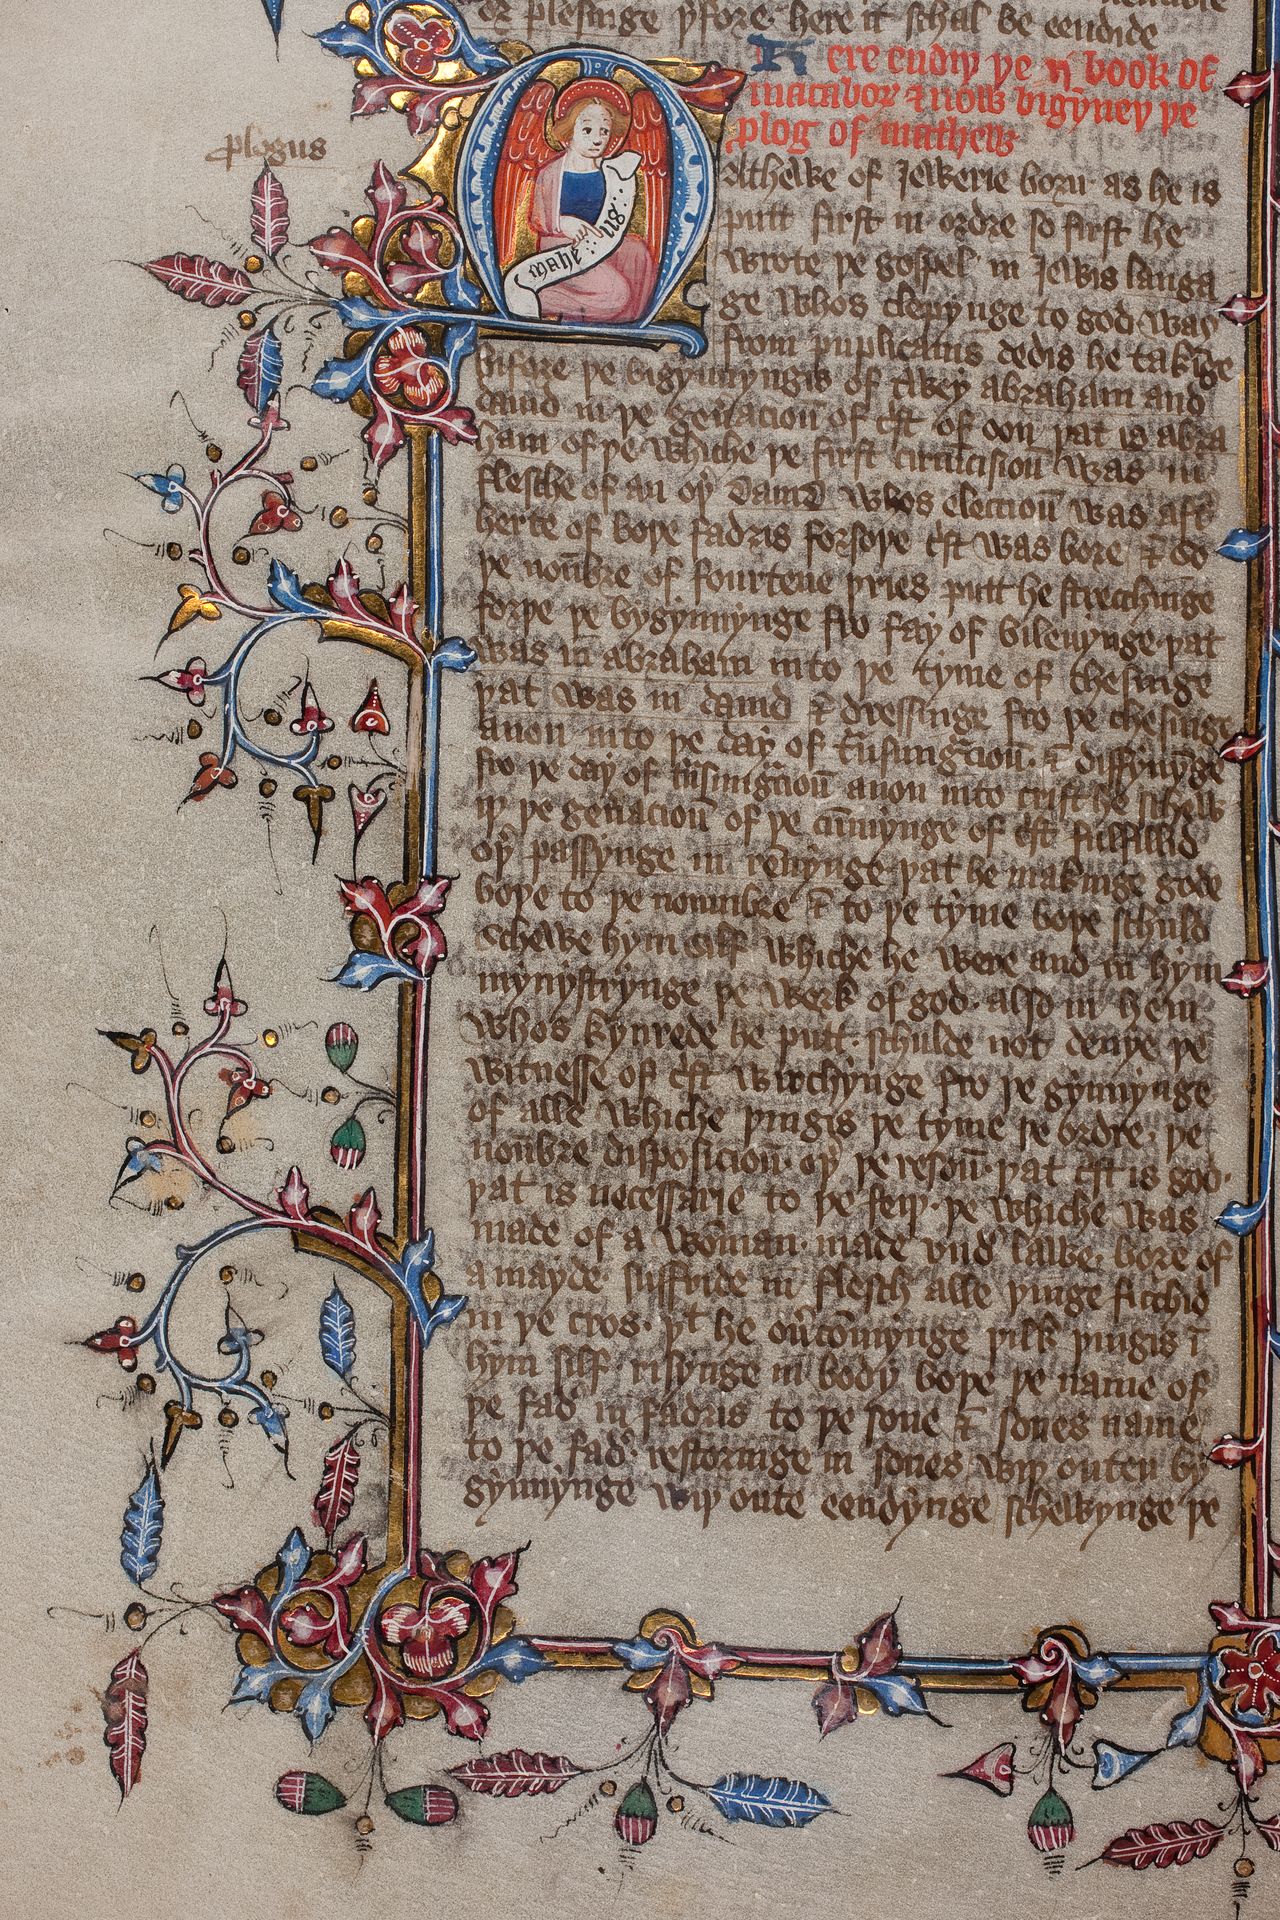 or plesinge þfore· here it schal be eendide
Here endiþ þe ij book of
macabor & now bigȳneþ þe
plog of mathew
plogus
mahe us
Athewe of Jewerie born· as he is
putt first in ordre so first he
wrote þe gospel· in Jewis langa
ge whos clepynge to god· was
from puplicanis dedis he takȳge
bifore þe bigynnyngis of twey abraham and
dauid in þe gen̄acioun of c̄st of oon þat is abra
ham of þe whiche þe first circūcisioun was in
flesche of an oþ dauid whos eleccioun was aft
herte of boþe fadris forsoþe c̄st was bore & so
þe noūbre of fourtene þries putt he strecchinge
forþe þe bygynnynge fro fay of bileuynge· þat
was in abraham into þe tyme of chesinge
þat was in dauid & dressinge fro þe chesinge
anon into þe day of t̄nsmigc̄ioun· & diffynȳge
fro þe day of t̄nsmigc̄ioun anon into crist he schew
iþ þe gen̄acioun of þe cūmynge of c̄st fulfillid
oþ passynge in reñynge· þat he makinge gode
boþe to þe noumbre & to þe tyme boþe schuld
schewe hym silf whiche he were and in hym
mynystrynge þe werk of god· also in hem
whos kynrede he putt· schulde not denye þe
witnesse of c̄st wirchynge fro þe gynnynge·
of alle whiche þingis þe tyme þe ordre· þe
noūbre disposicioun· oþ þe resoun· þat c̄st is god·
þat is necessarie to þe feiþ· þe whiche was
made of a woman· made vnd lawe· bore of
a mayde· suffride in flesch alle þinge ficchid
in þe cros· þt he oūcomynge þilk þingis ī
hym silf· risynge in body boþe þe name of
þe fad' in fadris to þe sone & sones name
to þe fad'· restoringe in sones wiþ outen by
gynnynge wiþ oute eendynge schewynge þe